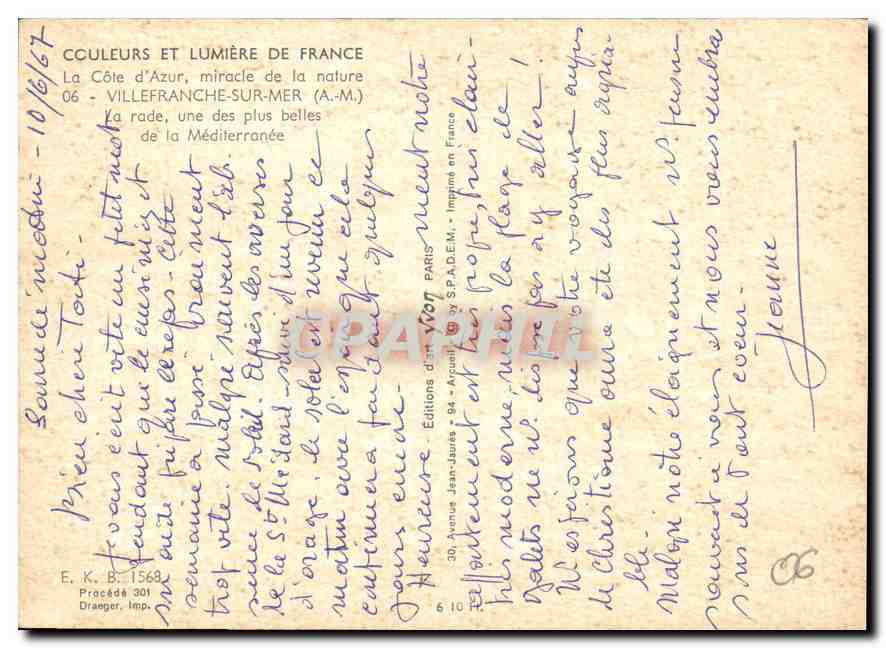 COULEURS ET LUMIÈRE DE FRANCE
La Côte d'Azur, miracle de la nature
06 - VILLEFRANCHE-SUR-MER (A.-M.)
La rade, une des plus belles
de la Méditerranée
Samedi matin - 10/6/67
Bien chère Tati -
Je vais écrit vite un petit mot
pendant que le cuisinier et
préparer le repas - Cette
semaine a passé vraiment
trop vite. malgré souvent l'ab-
sence de soleil. Après les averses
de la St Médard - suivi d'un jour
d'orage. le soleil est revenu ce
matin avec l'espoir que cela
continuera pendant quelques
jours encore -
Heureuse ment notre
appartement est très propre, très clair
très moderne, mais la plage de
galets ne ns dispose pas à y aller!
Ns espérons que votre voyage auprès
de Christiane aura été des plus agréa-
ble.
Malgré notre éloignement ns pensons
souvent à vous et nous vous embras
sons de tout coeur -
Jeanne
Éditions d'art YVON PARIS
30, Avenue Jean-Jaurès - 94 - Arcueil - S.P.A.D.E.M. - Imprimé en France
CPAPHIL
E. K. B. 1568
Procédé 301
Draeger, Imp.
6 10
06